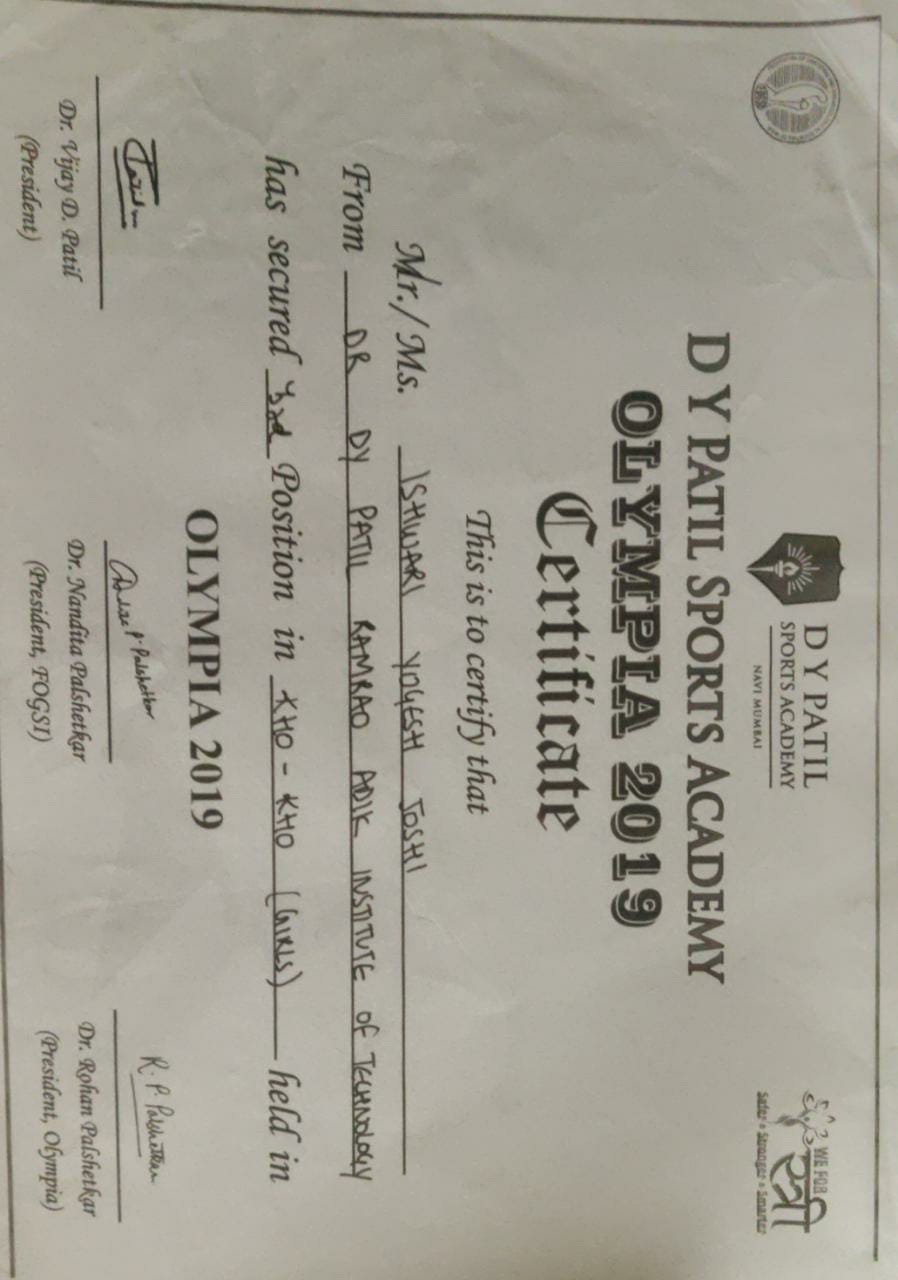 D Y PATIL
SPORTS ACADEMY
NAVI MUMBAI
1963
WE FOR
स्त्री
Safer • Stronger • Smarter
D Y PATIL SPORTS ACADEMY
OLYMPIA 2019
Certificate
This is to certify that
Mr./Ms. ISHWARI YOGESH JOSHI
From DR DY PATIL RAMRAO ADIK INSTITUTE OF TECHNOLOGY
has secured 3rd Position in KHO-KHO (GIRLS) held in
OLYMPIA 2019
R. P. Palshetkar
Dr. Vijay D. Patil
(President)
Dr. Nandita Palshetkar
(President, FOGSI)
Dr. Rohan Palshetkar
(President, Olympia)